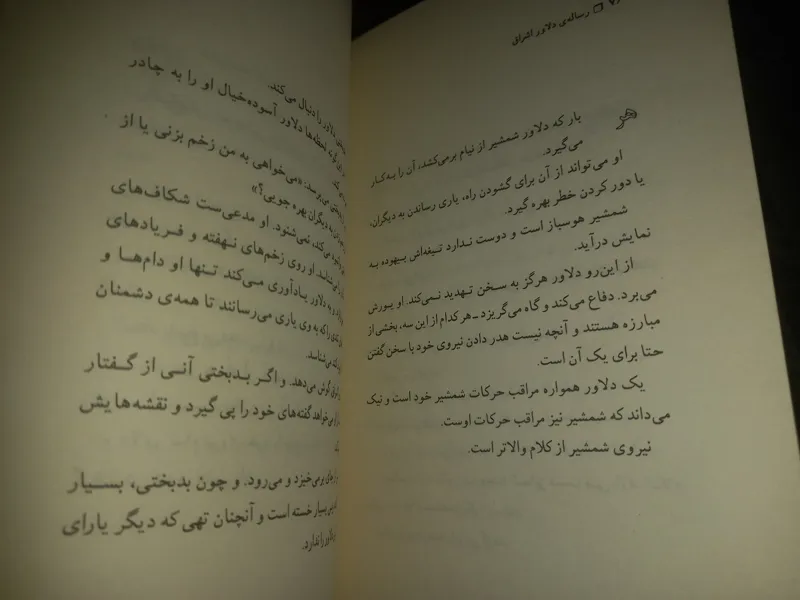 رساله‌ی دلاور اشراق
هر
بار که دلاور شمشیر از نیام برمی‌کشد، آن را به‌کار
می‌گیرد.
او می‌تواند از آن برای گشودن راه، یاری رساندن به دیگران،
یا دور کردن خطر بهره گیرد.
شمشیر هوسباز است و دوست ندارد تیغه‌اش بیهوده به
نمایش درآید.
از این‌رو دلاور هرگز به سخن تهدید نمی‌کند. او یورش
می‌برد. دفاع می‌کند و گاه می‌گریزد ـ هر کدام از این سه، بخشی از
مبارزه هستند و آنچه نیست هدر دادن نیروی خود با سخن گفتن
حتا برای یک آن است.
یک دلاور همواره مراقب حرکات شمشیر خود است و نیک
می‌داند که شمشیر نیز مراقب حرکات اوست.
نیروی شمشیر از کلام والاتر است.
دلاور را دنبال می‌کند.
لحظه‌ها دلاور آسوده‌خیال او را به چادر
می‌پرسد: «می‌خواهی به من زخم بزنی یا از
به دیگران بهره جویی؟»
می‌کند، نمی‌شنود. او مدعی‌ست شکاف‌های
او روی زخم‌های نهفته و فریادهای
و به دلاور یادآوری می‌کند تنها او دام‌ها و
را که به وی یاری می‌رسانند تا همه‌ی دشمنان
می‌شناسد.
گوش می‌دهد. و اگر بدبختی آنی از گفتار
می‌خواهد گفته‌های خود را پی گیرد و نقشه‌هایش
برمی‌خیزد و می‌رود. و چون بدبختی، بسیار
بسیار خسته است و آنچنان تهی که دیگر یارای
را ندارد.